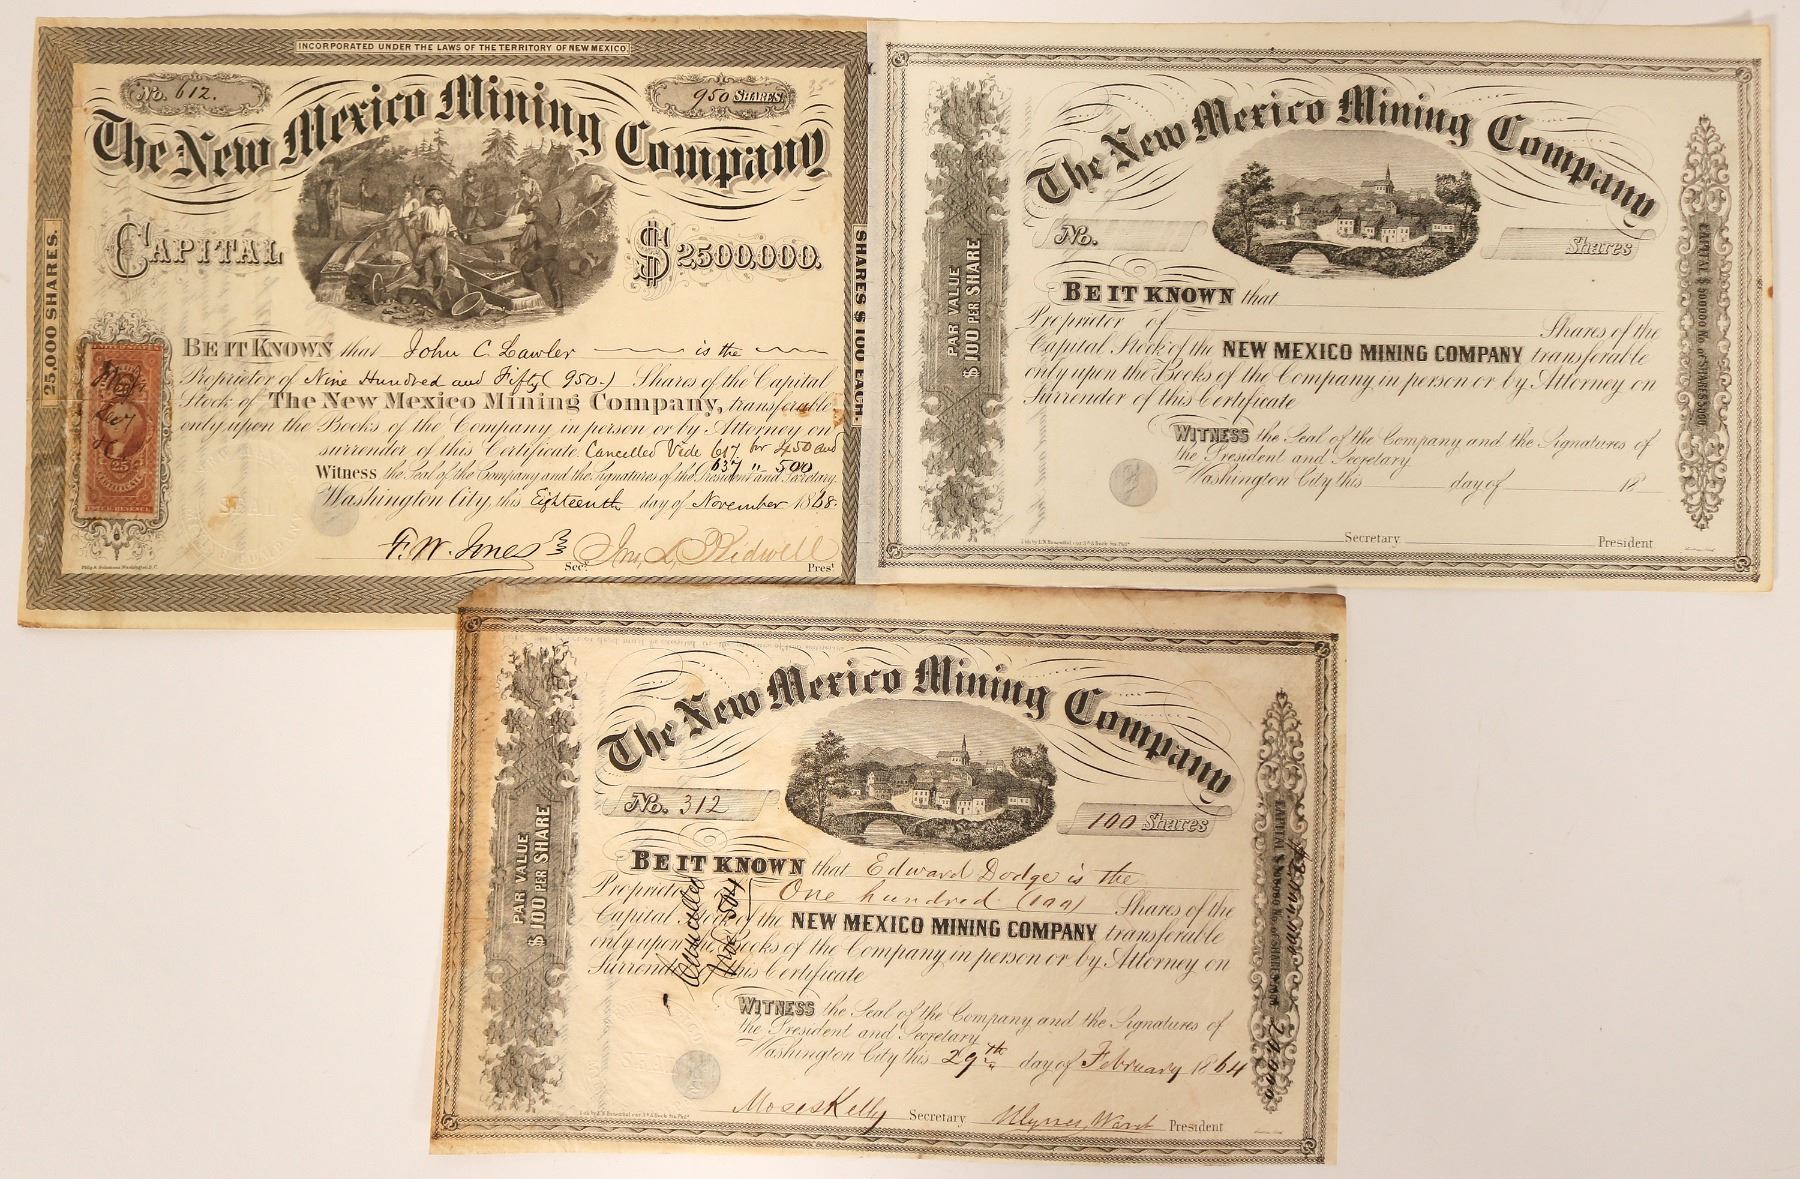 INCORPORATED UNDER THE LAWS OF THE TERRITORY OF NEW MEXICO.
No. 612.
950 SHARES
The New Mexico Mining Company
CAPITAL
$2500,000.
25,000 SHARES.
SHARES $100 EACH.
BE IT KNOWN that John C. Lawler is the
Proprietor of Nine Hundred and Fifty (950.) Shares of the Capital
Stock of The New Mexico Mining Company, transferable
only upon the Books of the Company in person or by Attorney on
surrender of this Certificate. Cancelled Vide 617 for 450 and
637 " 500
Witness the Seal of the Company and the Signatures of the President and Secretary.
Washington City, this Eighteenth day of November 1868.
F. W. Jones Sec. Jno. L. Kidwell Prest
Philp & Solomons Washington, D.C.
25
The New Mexico Mining Company
No.
Shares
PAR VALUE
$100 PER SHARE
CAPITAL $500000 No. of SHARES 5000
BE IT KNOWN that
Proprietor of Shares of the
Capital Stock of the NEW MEXICO MINING COMPANY transferable
only upon the Books of the Company in person or by Attorney on
Surrender of this Certificate
WITNESS the Seal of the Company and the Signatures of
the President and Secretary
Washington City this day of 18
Secretary President
Lith by L.N. Rosenthal
The New Mexico Mining Company
No. 312
100 Shares
PAR VALUE
$100 PER SHARE
BE IT KNOWN that Edward Dodge is the
Proprietor One hundred (100) Shares of the
Capital Stock of the NEW MEXICO MINING COMPANY transferable
only upon the Books of the Company in person or by Attorney on
Surrender this Certificate
Cancelled
Vide 504
WITNESS the Seal of the Company and the Signatures of
the President and Secretary
Washington City this 29th day of February 1864
Moses Kelly Secretary Ulysses Ward President
Lith by L.N. Rosenthal